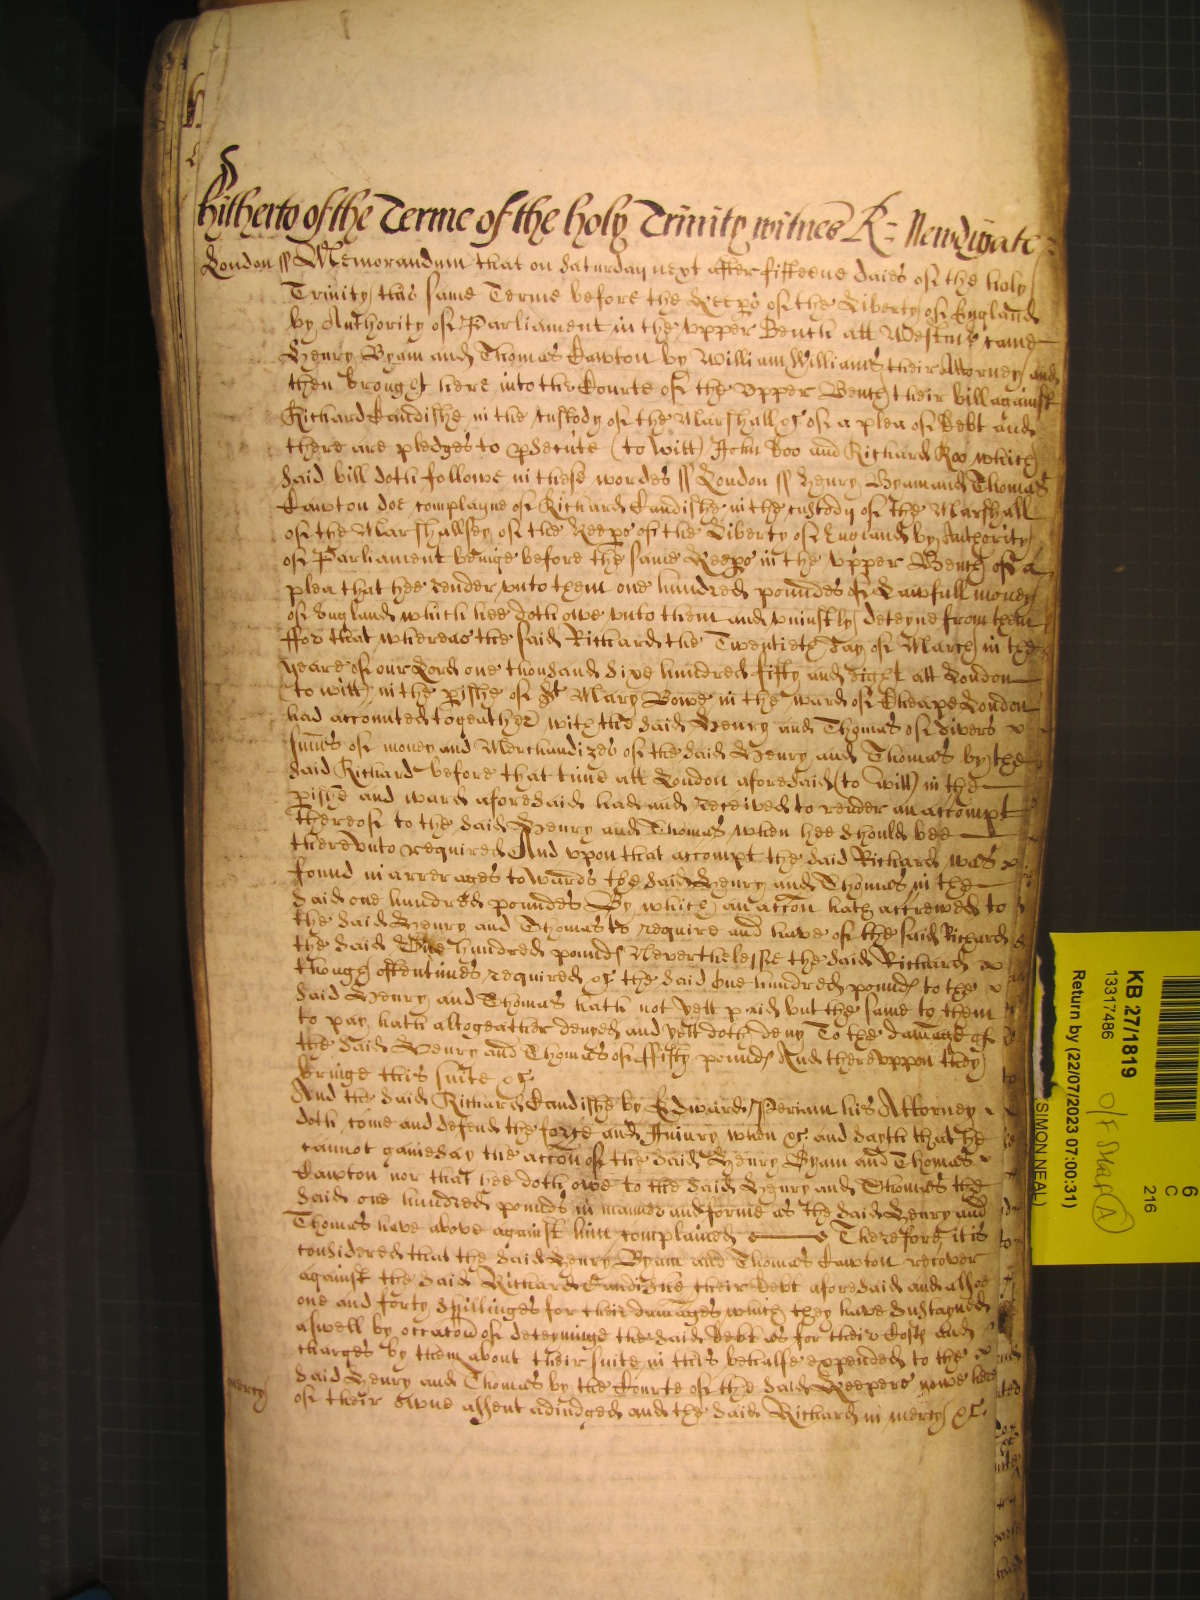 hitherto of the Terme of the holy Trinity witnes R: Newdigate
London ss Memorandum that on Saturday next after fifteene daies of the holy
Trinity this same Terme before the Keeps of the Liberty of England
by Authority of Parliament in the vpper Bench att Westmr came
Henry Byam and Thomas Cawton by William Williams their Attorney and
then brought here into the Courte of the vpper Bench their bill against
Richard Candishe in the custody of the Marshall &c of a plea of Debt and
there are pledges to psecute (to witt) John Doo and Richard Roo which
said bill doth followe in these wordes ss London ss Henry Byam and Thomas
Cawton doe complayne of Richard Candishe in the custody of the Marshall
of the Marshallsey of the Keeps of the Liberty of England by Authority
of Parliament beinge before the same Keeps in the vpper Bench of a
plea that hee render vnto them one hundred poundes of Lawfull money
of England which hee doth owe vnto them and vniustly deteyne from them
ffor that whereas the said Richard the Twentieth day of March in the
yeare of our Lord one thousand sixe hundred fifty and eight att London
(to witt) in the pishe of St Mary Bowe in the ward of Cheape London
had accounted togeather with the said Henry and Thomas of divers
summs of money and Merchandizes of the said Henry and Thomas by the
said Richard before that time att London aforesaid (to witt) in the
pishe and ward aforesaid had and received to render an accompt
thereof to the said Henry and Thomas when hee should bee
therevnto required And vpon that accompt the said Richard was
found in arrerages towards the said Henry and Thomas in the
said one hundred poundes By which an accon hath accrewed to
the said Henry and Thomas to require and have of the said Richard
the said One hundred pounds Neverthelesse the said Richard
though oftentimes required &c the said one hundred pounds to the
said Henry and Thomas hath not yett paid but the same to them
to pay hath altogeather denyed and yett doth deny To the damage of
the said Henry and Thomas of ffifty pounds And therevppon they
bringe this suite &c
And the said Richard Candishe by Edward Periam his Attorney
doth come and defend the force and Iniury when &c and sayth that he
cannot gainesay the accon of the said Henry Byam and Thomas
Cawton nor that hee doth owe to the said Henry and Thomas the
said one hundred pounds in manner and forme as the said Henry and
Thomas have above against him complained Therefore it is
considered that the said Henry Byam and Thomas Cawton recover
against the said Richard Candishe their debt aforesaid and alsoe
one and forty shillinges for their damages which they have sustayned
aswell by occacon of deteyninge the said debt as for their Costs and
charges by them about their suite in this behalfe expended to the
said Henry and Thomas by the Courte of the said Keepers nowe here
mercy
of their owne assent adiudged and the said Richard in mercy &c
KB 27/1819
13317486
Return by (22/07/2023 07:00:31)
(SIMON NEAL)
6
C
216